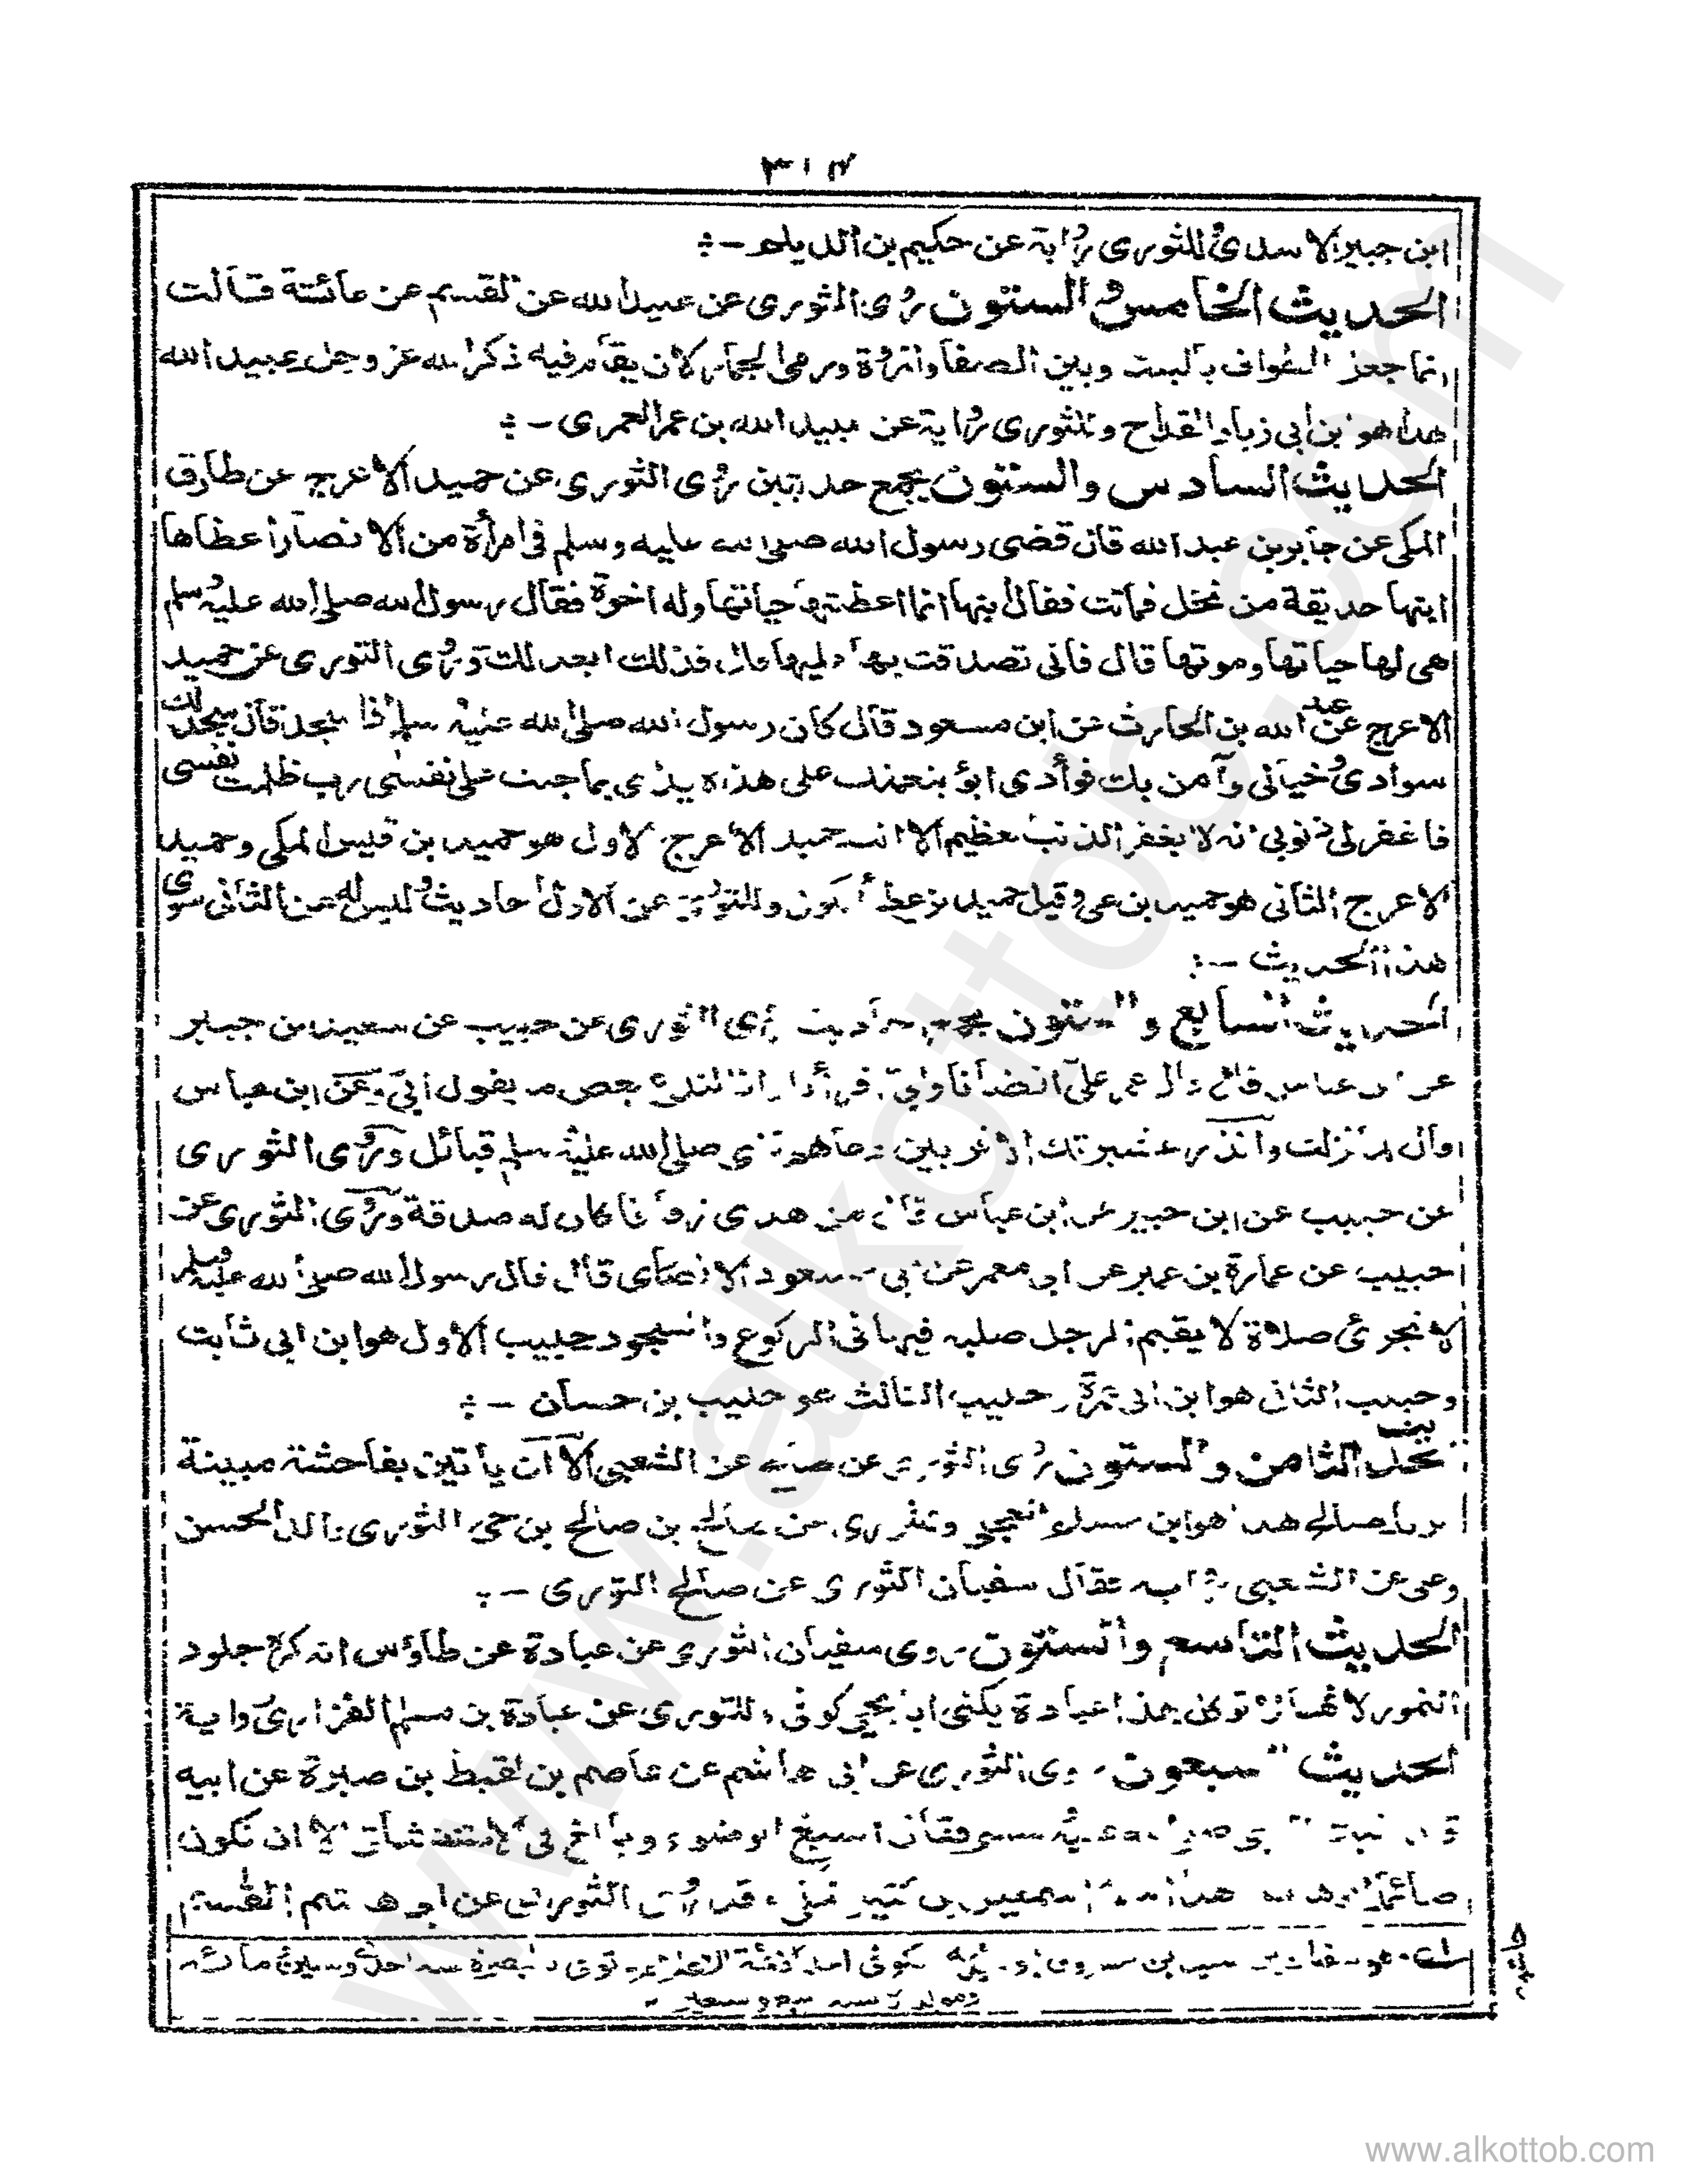 ابن جبير الاسدى وللثورى رواية عن حكيم بن الديلم -:
الحديث الخامس والستون روى الثورى عن عبيد الله عن القسم عن عائشة قالت
انما جعل الطواف بالبيت وبين الصفا والمروة ورمى الجمار لان يقام فيه ذكر الله عز وجل عبيد الله
هذا هو ابن ابى زياد القداح وللثورى رواية عن عبيد الله بن عمر العمرى -:
الحديث السادس والستون يجمع حديثين روى الثورى عن حميد الاعرج عن طارق
المكى عن جابر بن عبد الله قال قضى رسول الله صلى الله عليه وسلم فى امرأة من الانصار اعطاها
ابنها حديقة من نخل فماتت فقال ابنها انما اعطيتها حياتها وله اخوة فقال رسول الله صلى الله عليه وسلم
هى لها حياتها وموتها قال فانى تصدقت بها عليها قال فذلك ابعد لك وروى الثورى عن حميد
الاعرج عن عبد الله بن الحارث عن ابن مسعود قال كان رسول الله صلى الله عليه وسلم اذا سجد قال سجد لك
سوادى وخيالى وآمن بك فوأدى ابوء بنعمتك على هذه يدى بما جنت على نفسى رب ظلمت نفسى
فاغفر لى ذنوبى انه لا يغفر الذنب العظيم الا انت حميد الاعرج الاول هو حميد بن قيس المكى وحميد
الاعرج الثانى هو حميد بن على وقيل حميد بن عطا الكوفى وللثورى عن الاول احاديث وليس له عن الثانى سوى
هذا الحديث -:
الحديث السابع والستون يجمع احاديث روى الثورى عن حبيب عن سعيد بن جبير
عن ابن عباس قال قال عمر على اقضانا وابى اقرأنا وانا لندع بعض ما يقول ابى وعن ابن عباس
قال لما نزلت وانذر عشيرتك الاقربين دعاهم النبى صلى الله عليه وسلم قبائل وروى الثورى
عن حبيب عن ابن جبير عن ابن عباس قال من هدى زقاقا كان له صدقة وروى الثورى عن
حبيب عن عمارة بن عمير عن ابى معمر عن ابى مسعود الانصارى قال قال رسول الله صلى الله عليه وسلم
لا تجزئ صلاة لا يقيم الرجل صلبه فيها فى الركوع والسجود حبيب الاول هو ابن ابى ثابت
وحبيب الثانى هو ابن ابى عمرة وحبيب الثالث هو حبيب بن حسان -:
الحديث الثامن والستون روى الثورى عن صالح عن الشعبى الا ان ياتين بفاحشة مبينة
صالح هذا هو ابن مسلم العجلى وللثورى عن صالح بن صالح بن حى الثورى والد الحسن
وعلى عن الشعبى رواية فقال سفيان الثورى عن صالح الثورى -:
الحديث التاسع والستون روى سفيان الثورى عن عبادة عن طاؤس انه كره جلود
النمور لانها لا تؤكل هذا عبادة يكنى ابا يحيى كوفى وللثورى عن عبادة بن مسلم الفزارى رواية
الحديث السبعون روى الثورى عن ابى هاشم عن عاصم بن لقيط بن صبرة عن ابيه
قال اتيت النبى صلى الله عليه وسلم فقال اسبغ الوضوء وبالغ فى الاستنشاق الا ان تكون
صائما ابو هاشم هذا اسمه اسمعيل بن كثير مكى وقد روى الثورى عن ابى هاشم القسم
سنة احدى وستين ومائة
ومولده سنة سبع وسبعين